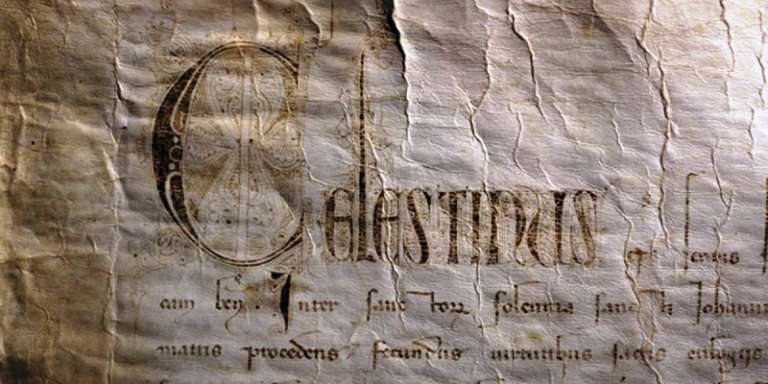 Celestinus eps servus
cam ben Inter sanctoꝝ solemnia sancti Johanni
matris procedens fecundus virtutibus sacris eulogijs